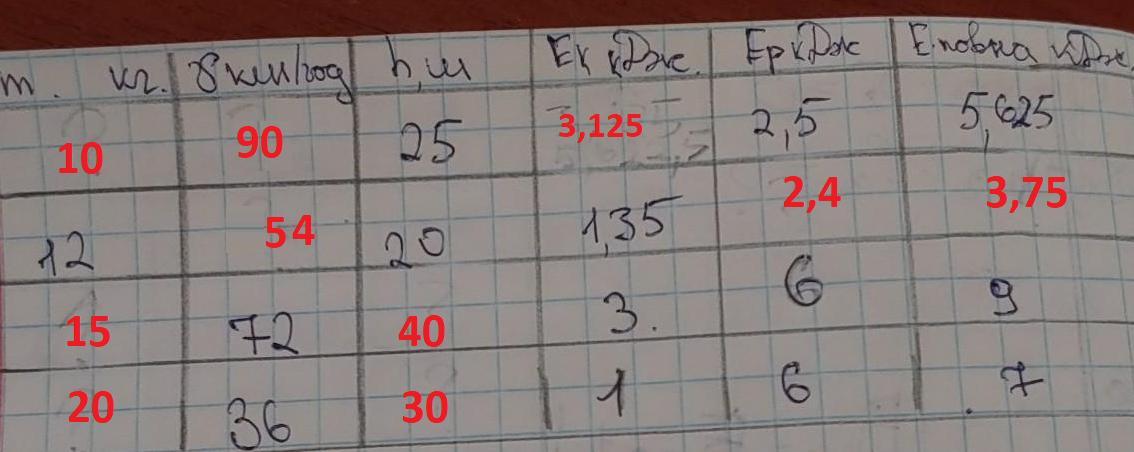 m. кг. υ км/год h, м Eк кДж. Ep кДж Eповна кДж.
10 90 25 3,125 2,5 5,625
12 54 20 1,35 2,4 3,75
15 72 40 3. 6 9
20 36 30 1 6 7